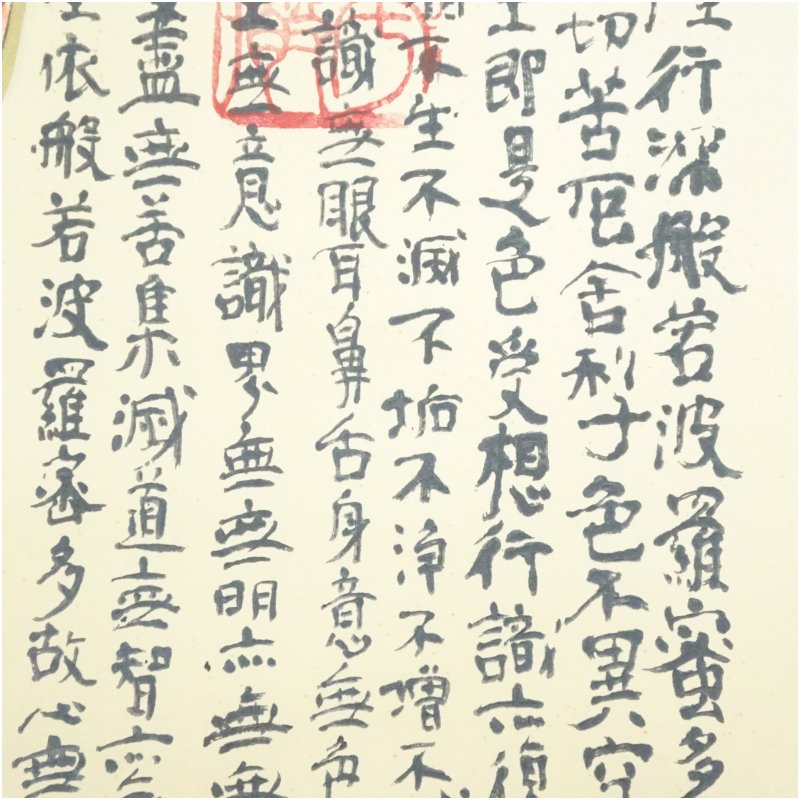 行深般若波羅蜜多
切苦厄舍利子色不異空
即是色受想行識亦復
不生不滅不垢不淨不增不
識無眼耳鼻舌身意無色
無意識界無無明亦無無
盡無苦集滅道無智亦
依般若波羅蜜多故心無